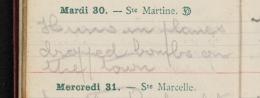 Mardi 30. — Ste Martine.
Huns in planes
dropped bombs on
the town
Mercredi 31. — Ste Marcelle.